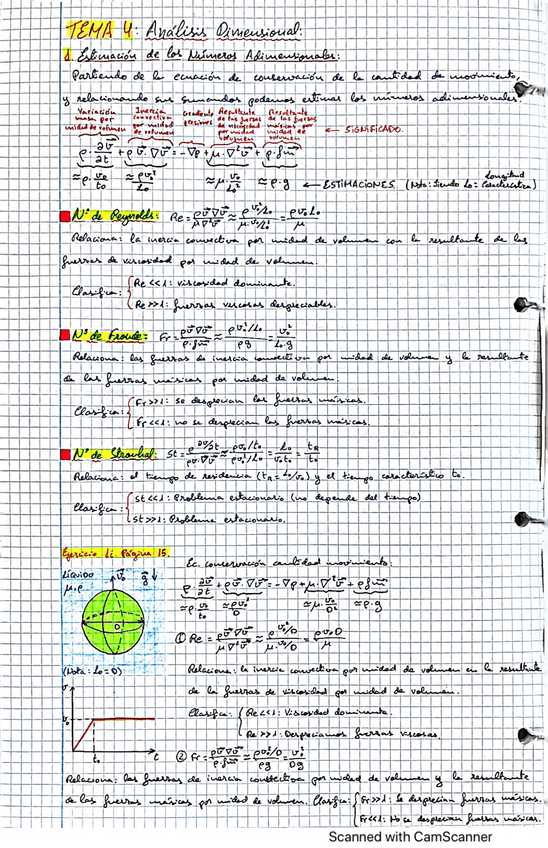 TEMA 4: Análisis Dimensional:
1. Estimación de los Números Adimensionales:
Partiendo de la ecuación de conservación de la cantidad de movimiento,
y relacionando sus sumandos podemos estimar los números adimensionales:
Variación masa por unidad de volumen
Inercia convectiva por unidad de volumen
Gradiente presiones
Resultante de las fuerzas de viscosidad por unidad volumen
Resultante de las fuerzas másicas por unidad de volumen
← SIGNIFICADO.
ρ·∂v̄/∂t + ρv̄·∇v̄ = -∇p + μ·∇²v̄ + ρ·f̄m
≈ρ·v₀/t₀ ≈ρv₀²/L₀ ≈μ·v₀/L₀² ≈ρ·g ← ESTIMACIONES. (Nota: Siendo L₀ = Longitud Característica)
Nº de Reynolds: Re = ρv̄∇v̄/μ∇²v̄ ≈ ρv₀²/L₀/μ·v₀/L₀² = ρv₀L₀/μ
Relaciona: la inercia convectiva por unidad de volumen con la resultante de las
fuerzas de viscosidad por unidad de volumen.
Clasifica:
Re<<1: viscosidad dominante.
Re>>1: fuerzas viscosas despreciables.
Nº de Froude: Fr = ρv̄∇v̄/ρ·f̄m ≈ ρv₀²/L₀/ρg = v₀²/L₀·g
Relaciona: las fuerzas de inercia convectiva por unidad de volumen y la resultante
de las fuerzas másicas por unidad de volumen.
Clasifica:
Fr>>1: se desprecian las fuerzas másicas.
Fr<<1: no se desprecian las fuerzas másicas.
Nº de Strouhal: St = ρ ∂v̄/∂t/ρv̄·∇v̄ ≈ ρv₀/t₀/ρv₀²/L₀ = L₀/v₀t₀ = tR/t₀
Relaciona: el tiempo de residencia (tR = L₀/v₀) y el tiempo característico t₀.
Clasifica:
St<<1: Problema estacionario (no depende del tiempo)
St>>1: Problema estacionario.
Ejercicio 1i. Página 15.
Ec. conservación cantidad movimiento:
Líquido
μ, ρ
v̄₀
ḡ
D
(Nota: L₀=D)
ρ·∂v̄/∂t + ρv̄·∇v̄ = -∇p + μ·∇²v̄ + ρf̄m
≈ρ·v₀/t₀ ≈ρv₀²/D ≈μ·v₀/D² ≈ρ·g
① Re = ρv̄∇v̄/μ∇²v̄ ≈ ρv₀²/D/μ·v₀/D = ρv₀D/μ
Relaciona: la inercia convectiva por unidad de volumen en la resultante
de la fuerzas de viscosidad por unidad de volumen.
Clasifica:
Re<<1: Viscosidad dominante.
Re>>1: Despreciamos fuerzas viscosas.
v
v₀
t₀
t
② Fr = ρv̄∇v̄/ρ·f̄m ≈ ρv₀²/D/ρg = v₀²/Dg
Relaciona: las fuerzas de inercia convectiva por unidad de volumen y la resultante
de las fuerzas másicas por unidad de volumen. Clasifica:
Fr>>1: Se desprecian fuerzas másicas.
Fr<<1: No se desprecian fuerzas másicas.
Scanned with CamScanner